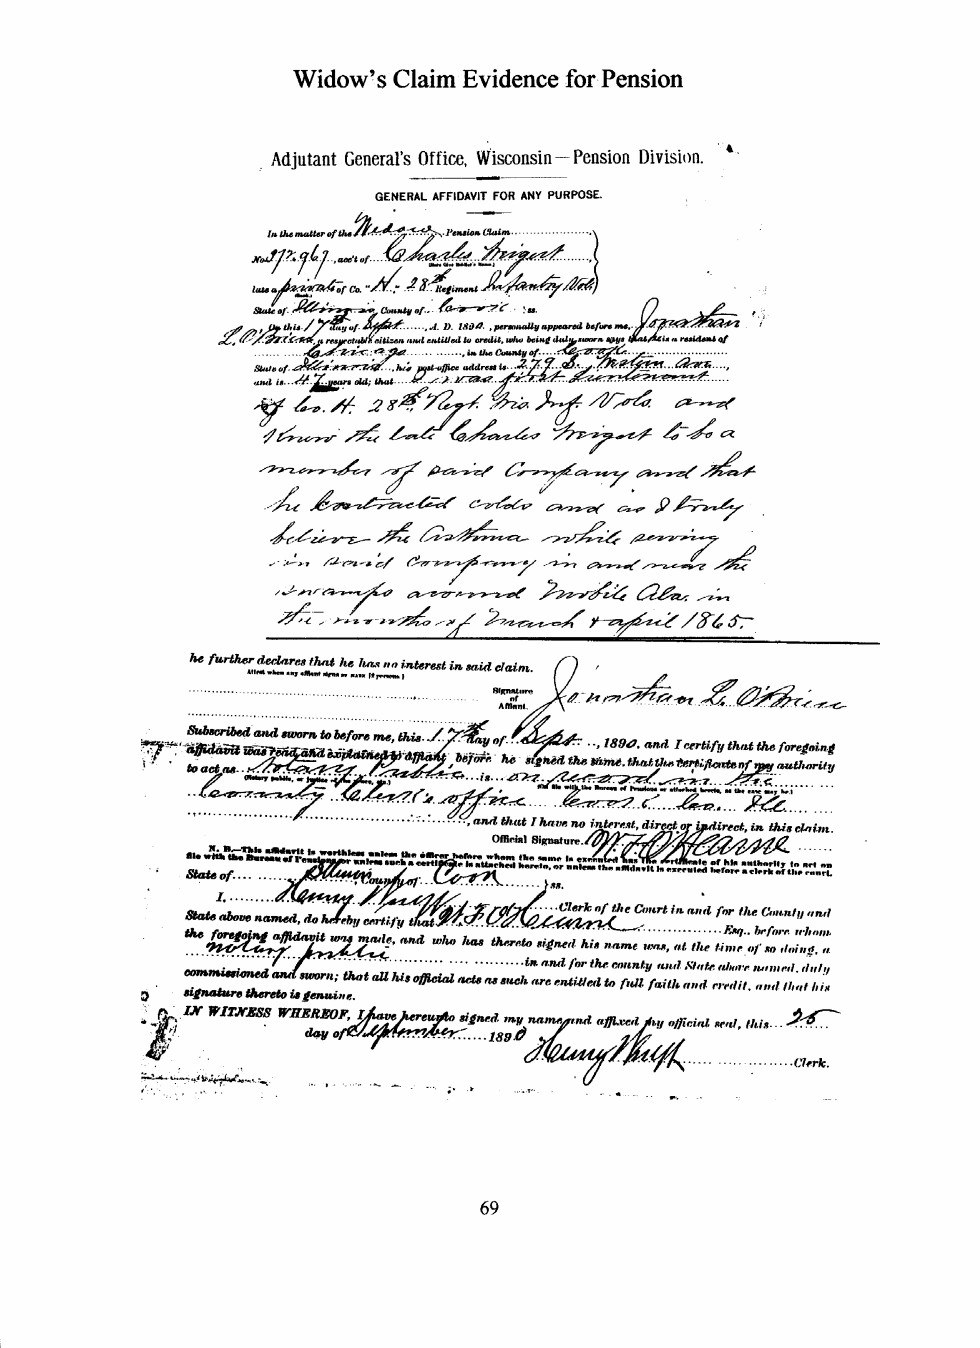 Widow's Claim Evidence for Pension
Adjutant General's Office, Wisconsin—Pension Division.
GENERAL AFFIDAVIT FOR ANY PURPOSE.
In the matter of the Widow Pension Claim
No. 272.967, acc't of Charles Weigert
late a private of Co. "H." 28th Regiment Infantry Vols
State of Illinois, County of Cook ss.
On this 17th day of Sept, A. D. 1890, personally appeared before me, Jonathan
L. O'Brien, a respectable citizen and entitled to credit, who being duly sworn says that he is a resident of
Chicago, in the County of Cook
State of Illinois, his post-office address is 279 S. Western Ave.,
and is 47 years old; that I was first Lieutenant
of Co. H. 28th Regt. Wis. Inf. Vols. and
Know the late Charles Weigert to be a
member of said Company and that
he contracted colds and as I truly
believe the Asthma while serving
in said company in and near the
swamps around Mobile Ala. in
the months of March & April 1865.
he further declares that he has no interest in said claim.
Attest when any affiant signs by MARK [2 persons.]
Signature
of
Affiant.
Jonathan L. O'Brien
Subscribed and sworn to before me, this 17th day of Sept., 1890, and I certify that the foregoing
affidavit was read and explained to affiant before he signed the same, that the Certificate of my authority
to act as Notary Public is on record in the
County Clerk's office Cook Co. Ill
, and that I have no interest, direct or indirect, in this claim.
Official Signature. W. F. O'Hearne
N. B.—This affidavit is worthless unless the officer before whom the same is executed has the certificate of his authority to act on
file with the Bureau of Pensions or unless such a certificate is attached hereto, or unless the affidavit is executed before a clerk of the court.
State of Illinois County of Cook ss.
I, Henry Wulff Clerk of the Court in and for the County and
State above named, do hereby certify that W. F. O'Hearne Esq., before whom
the foregoing affidavit was made, and who has thereto signed his name was, at the time of so doing, a
Notary public in and for the county and State above named, duly
commissioned and sworn; that all his official acts as such are entitled to full faith and credit, and that his
signature thereto is genuine.
IN WITNESS WHEREOF, I have hereunto signed my name and affixed my official seal, this 25
day of September 1890
Henry Wulff Clerk.
69